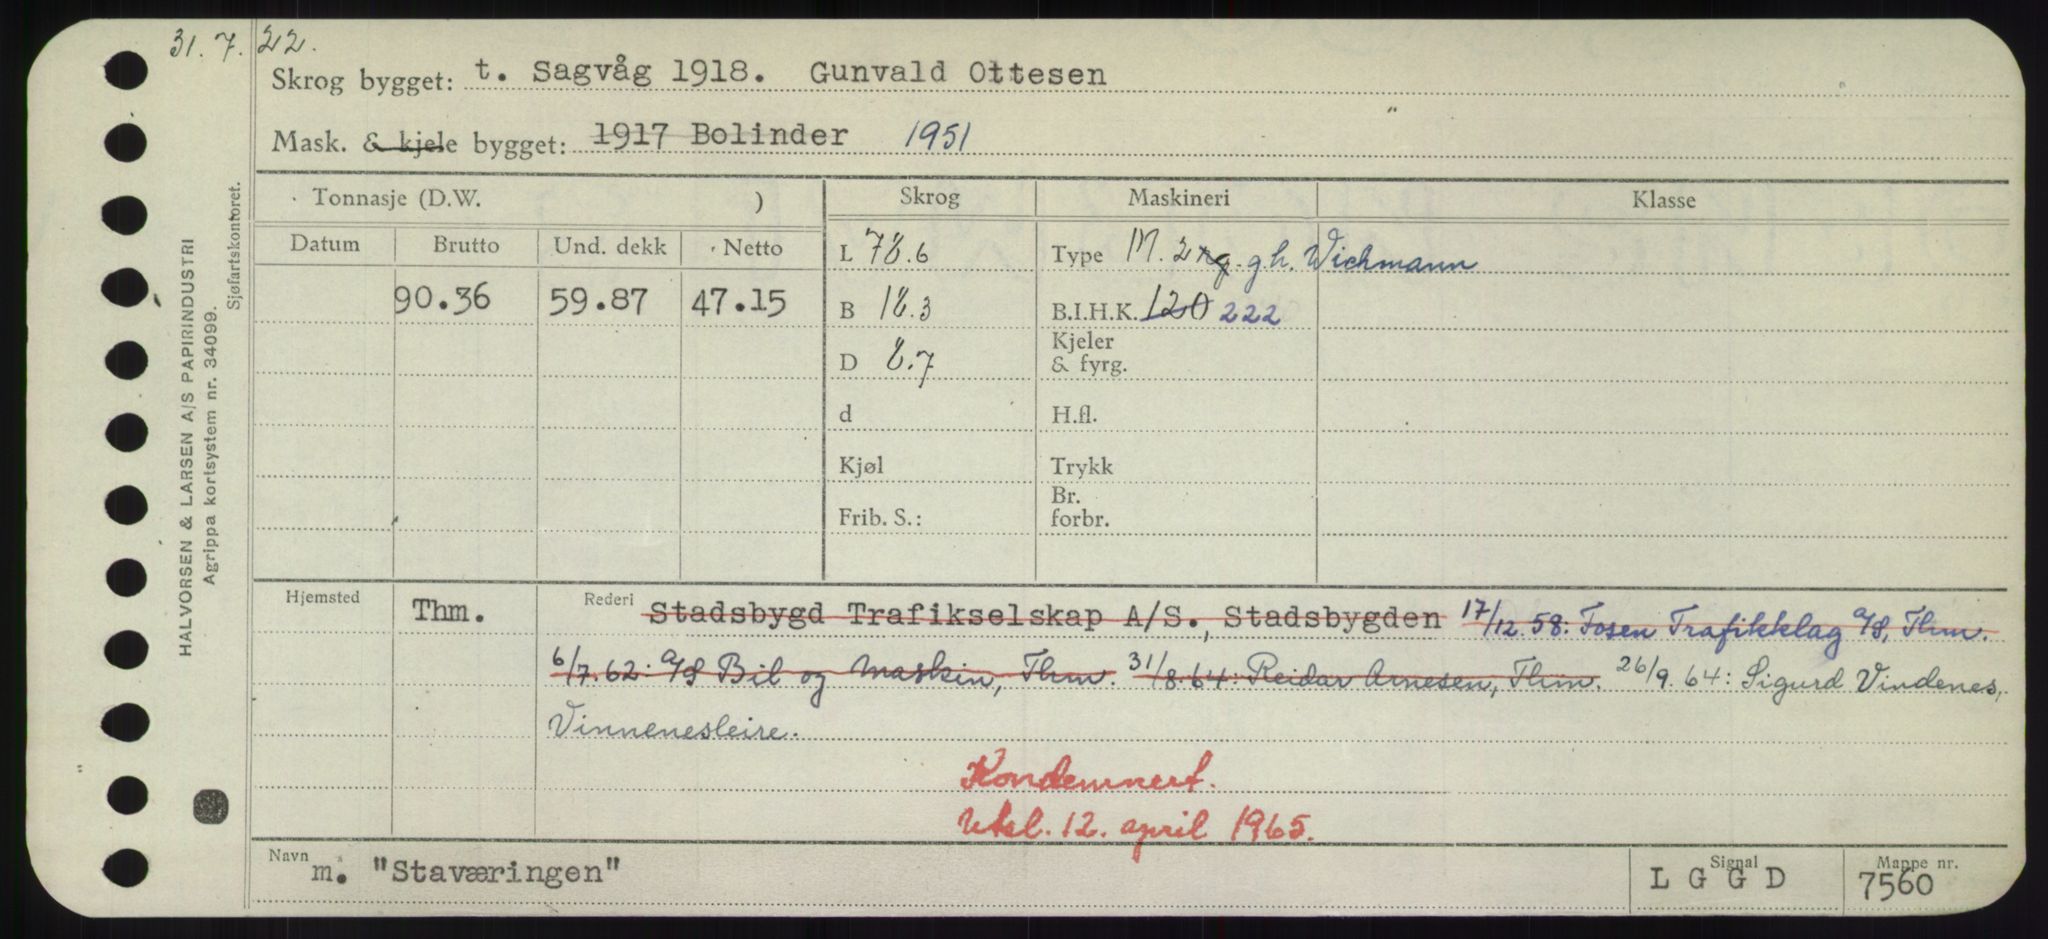 31. 7. 22.
Skrog bygget: t. Sagvåg 1918. Gunvald Ottesen
Mask. & kjele bygget: 1917 Bolinder 1951
Tonnasje (D.W. ) Skrog Maskineri Klasse
Datum Brutto Und. dekk Netto
L 78.6 Type M. 2 g.h. Wichmann
90.36 59.87 47.15 B 18.3 B.I.H.K. 120 222
D 8.7 Kjeler & fyrg.
d H.fl.
Kjøl Trykk
Frib. S.: Br. forbr.
Hjemsted Thm. Rederi Stadsbygd Trafikselskap A/S., Stadsbygden 17/12.58: Fosen Trafikklag A/S, Thm.
6/7.62: A/S Bil og Maskin, Thm. 31/8.64: Reidar Arnesen, Thm. 26/9.64: Sigurd Vindenes,
Vinnenesleire.
Kondemnert.
Utsl. 12. april 1965.
Navn m. "Staværingen" Signal L G G D Mappe nr. 7560
HALVORSEN & LARSEN A/S PAPIRINDUSTRI
Agrippa kortsystem nr. 34099.
Sjøfartskontoret.